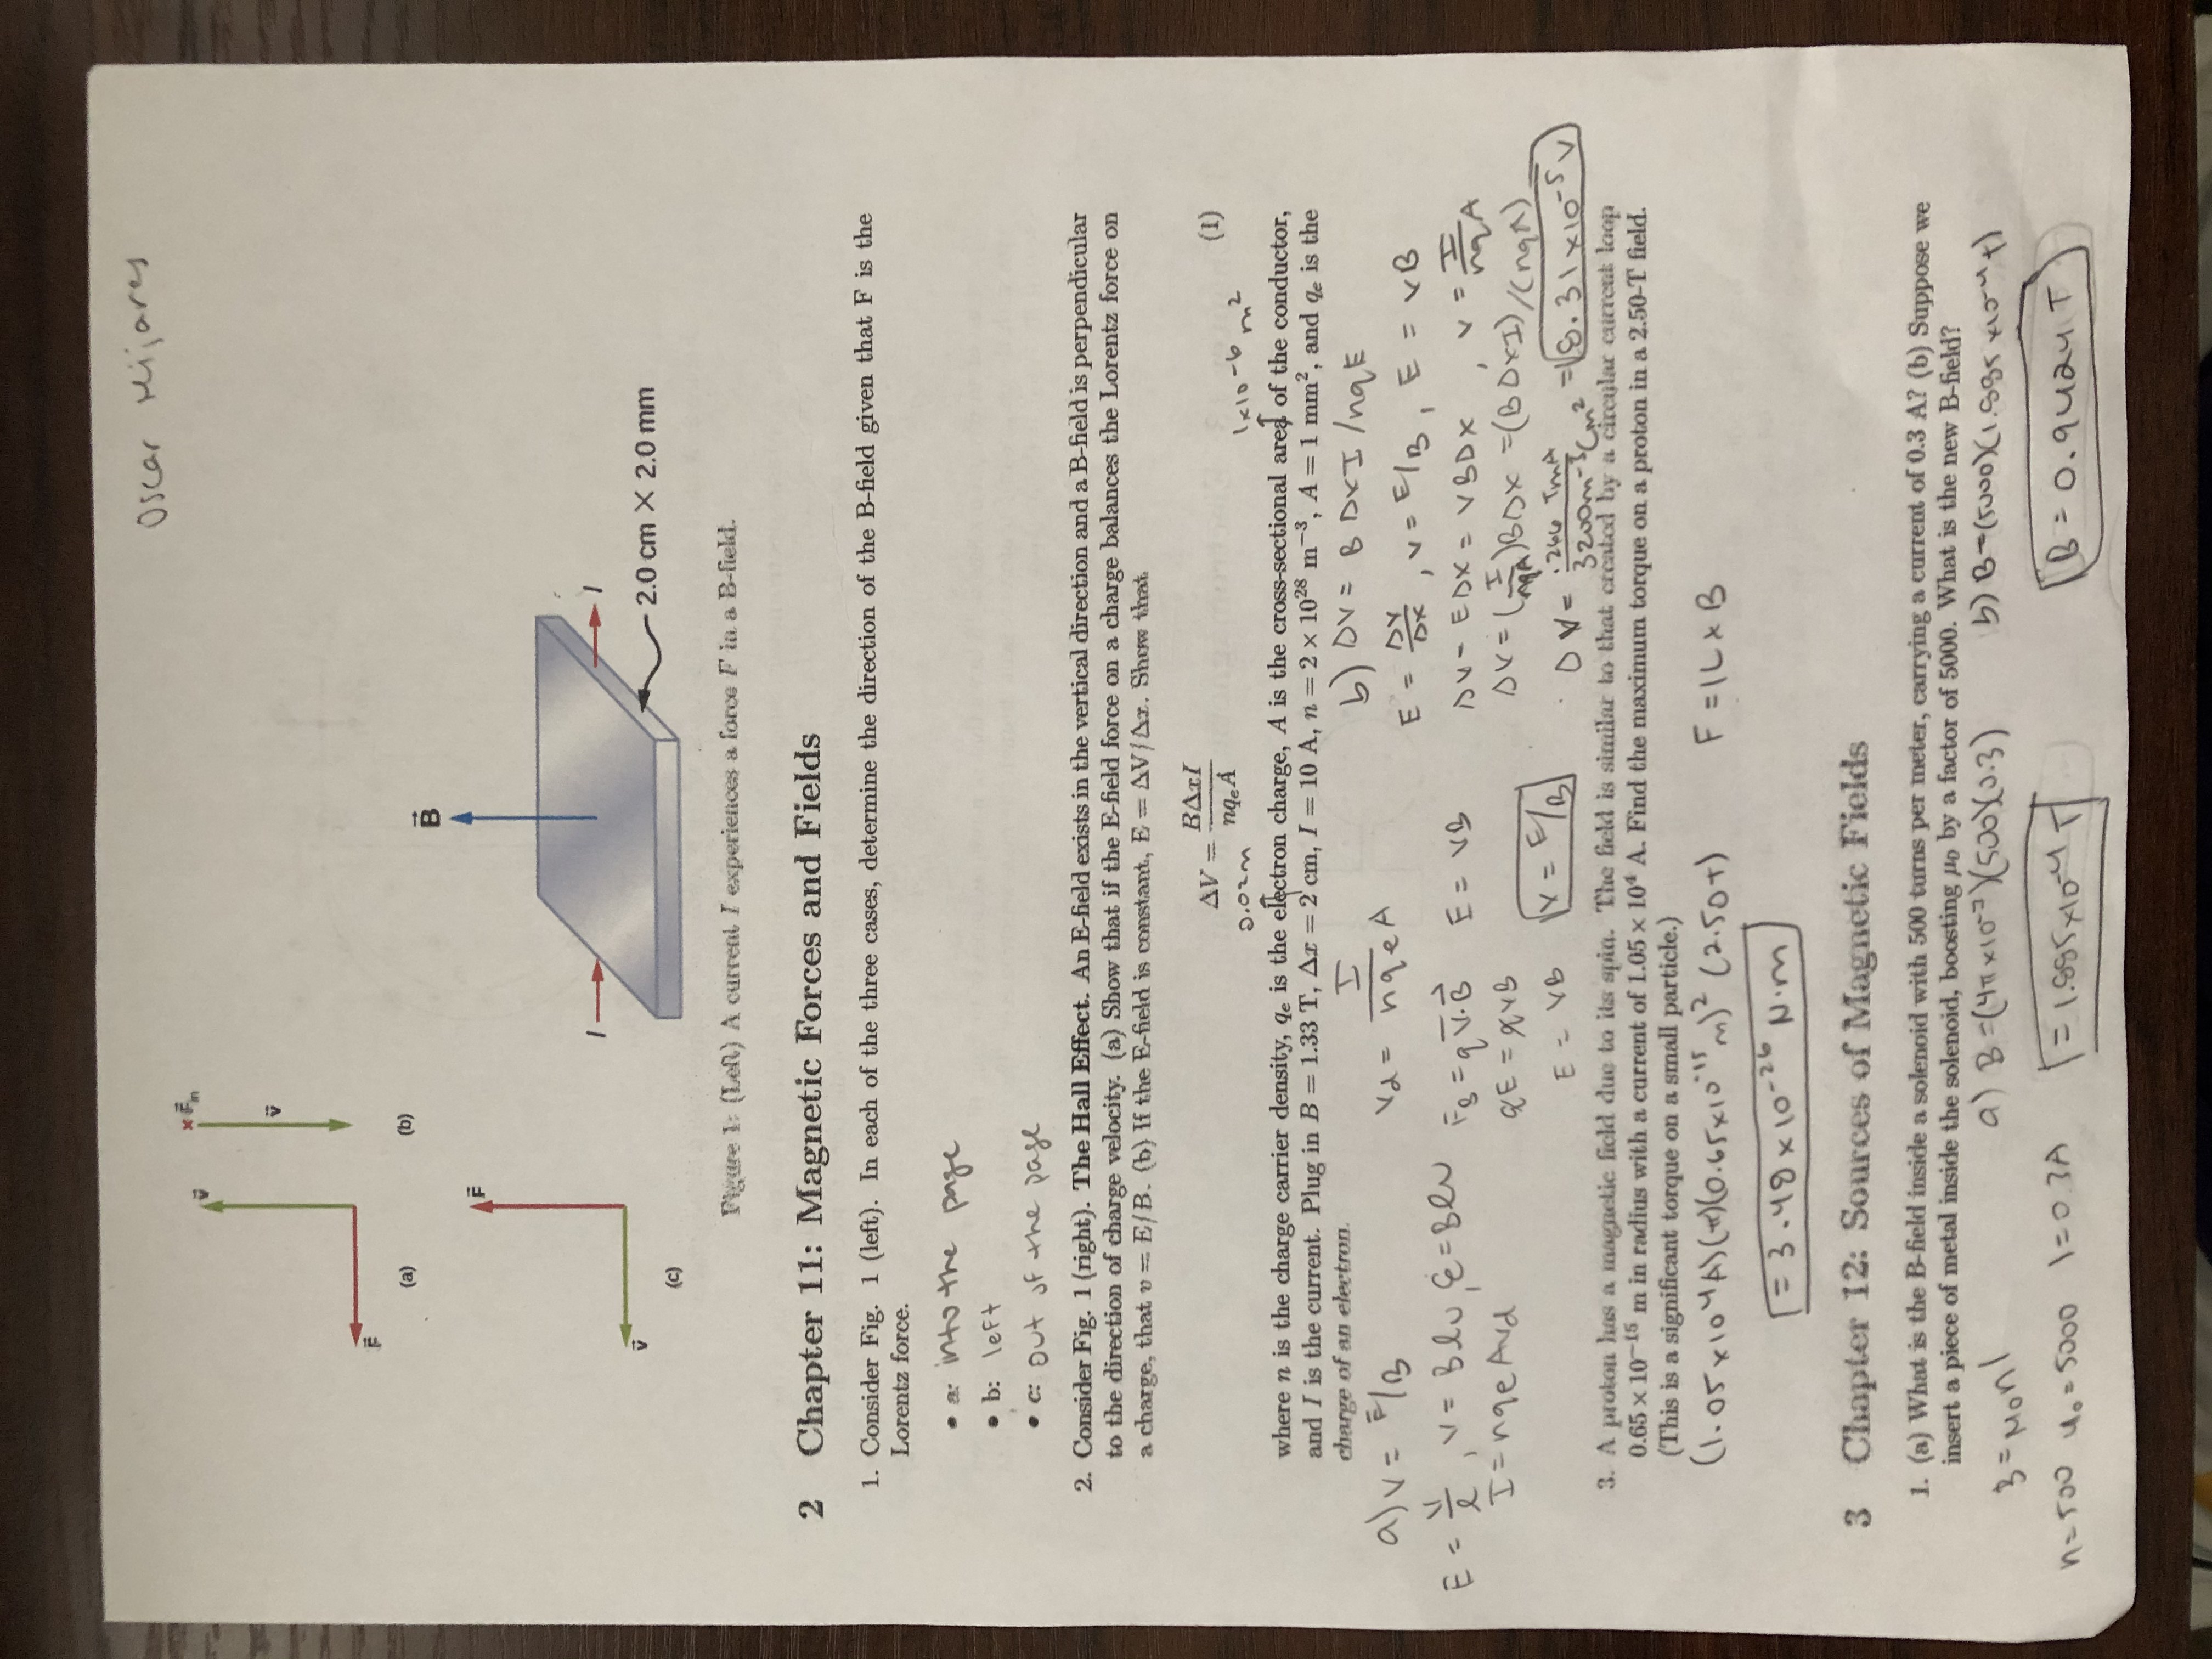 Oscar Mijares
v⃗
× F⃗in
v⃗
F⃗
(a)
(b)
B⃗
F⃗
I
I
v⃗
2.0 cm × 2.0 mm
(c)
Figure 1: (Left) A current I experiences a force F in a B-field.
2 Chapter 11: Magnetic Forces and Fields
1. Consider Fig. 1 (left). In each of the three cases, determine the direction of the B-field given that F is the
Lorentz force.
• a: into the page
• b: left
• c: out of the page
2. Consider Fig. 1 (right). The Hall Effect. An E-field exists in the vertical direction and a B-field is perpendicular
to the direction of charge velocity. (a) Show that if the E-field force on a charge balances the Lorentz force on
a charge, that v = E/B. (b) If the E-field is constant, E = ΔV/Δx. Show that
ΔV = BΔxI / nqeA (1)
0.02m
1x10^-6 m²
where n is the charge carrier density, qe is the electron charge, A is the cross-sectional area of the conductor,
and I is the current. Plug in B = 1.33 T, Δx = 2 cm, I = 10 A, n = 2 × 10^28 m^-3, A = 1 mm², and qe is the
charge of an electron.
a) v = E/B
vd = I / nqeA
b) ΔV = BΔxI/nqE
E = V/l , v = Blv, ε = Blv
I = nqeAvd
FB = q v⃗·B⃗ E = VB
qE = qvB
E = VB v = E/B
E = ΔV/Δx , v = E/B , E = vB
ΔV - EΔx = VBΔx , v = I/nqA
ΔV = (I/nqA)BΔx = (BΔxI)/(nqA)
ΔV = .266 TmA / 3200m^-3Cm² = 8.31x10^-5 V
3. A proton has a magnetic field due to its spin. The field is similar to that created by a circular current loop
0.65 × 10^-15 m in radius with a current of 1.05 × 10^4 A. Find the maximum torque on a proton in a 2.50-T field.
(This is a significant torque on a small particle.)
(1.05x10^4A)(π)(0.65x10^-15 m)² (2.50T) F = IL x B
= 3.48x10^-26 N·m
3 Chapter 12: Sources of Magnetic Fields
1. (a) What is the B-field inside a solenoid with 500 turns per meter, carrying a current of 0.3 A? (b) Suppose we
insert a piece of metal inside the solenoid, boosting μ0 by a factor of 5000. What is the new B-field?
B = μ0nI
a) B = (4πx10^-7)(500)(0.3)
b) B = (5000)(1.885x10^-4T)
n=500 u0=5000 I=0.3A
= 1.885x10^-4 T
B = 0.9424 T